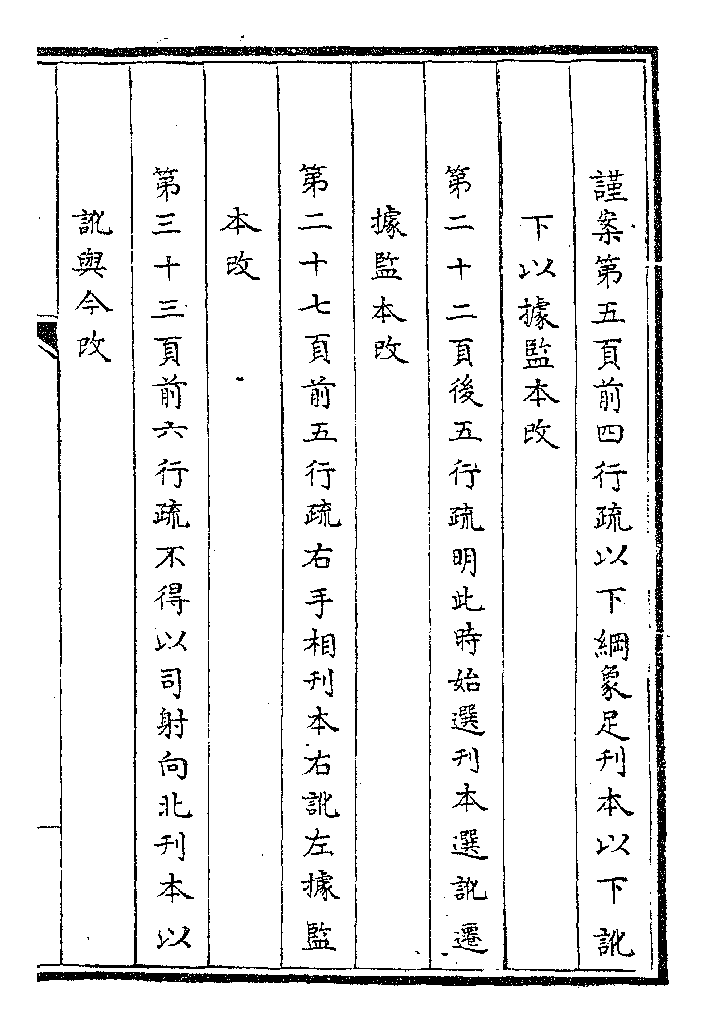 謹案第五頁前四行疏以下綱象足刊本以下訛
下以據監本改
第二十二頁後五行疏明此時始選刊本選訛遷
據監本改
第二十七頁前五行疏右手相刊本右訛左據監
本改
第三十三頁前六行疏不得以司射向北刊本以
訛與今改